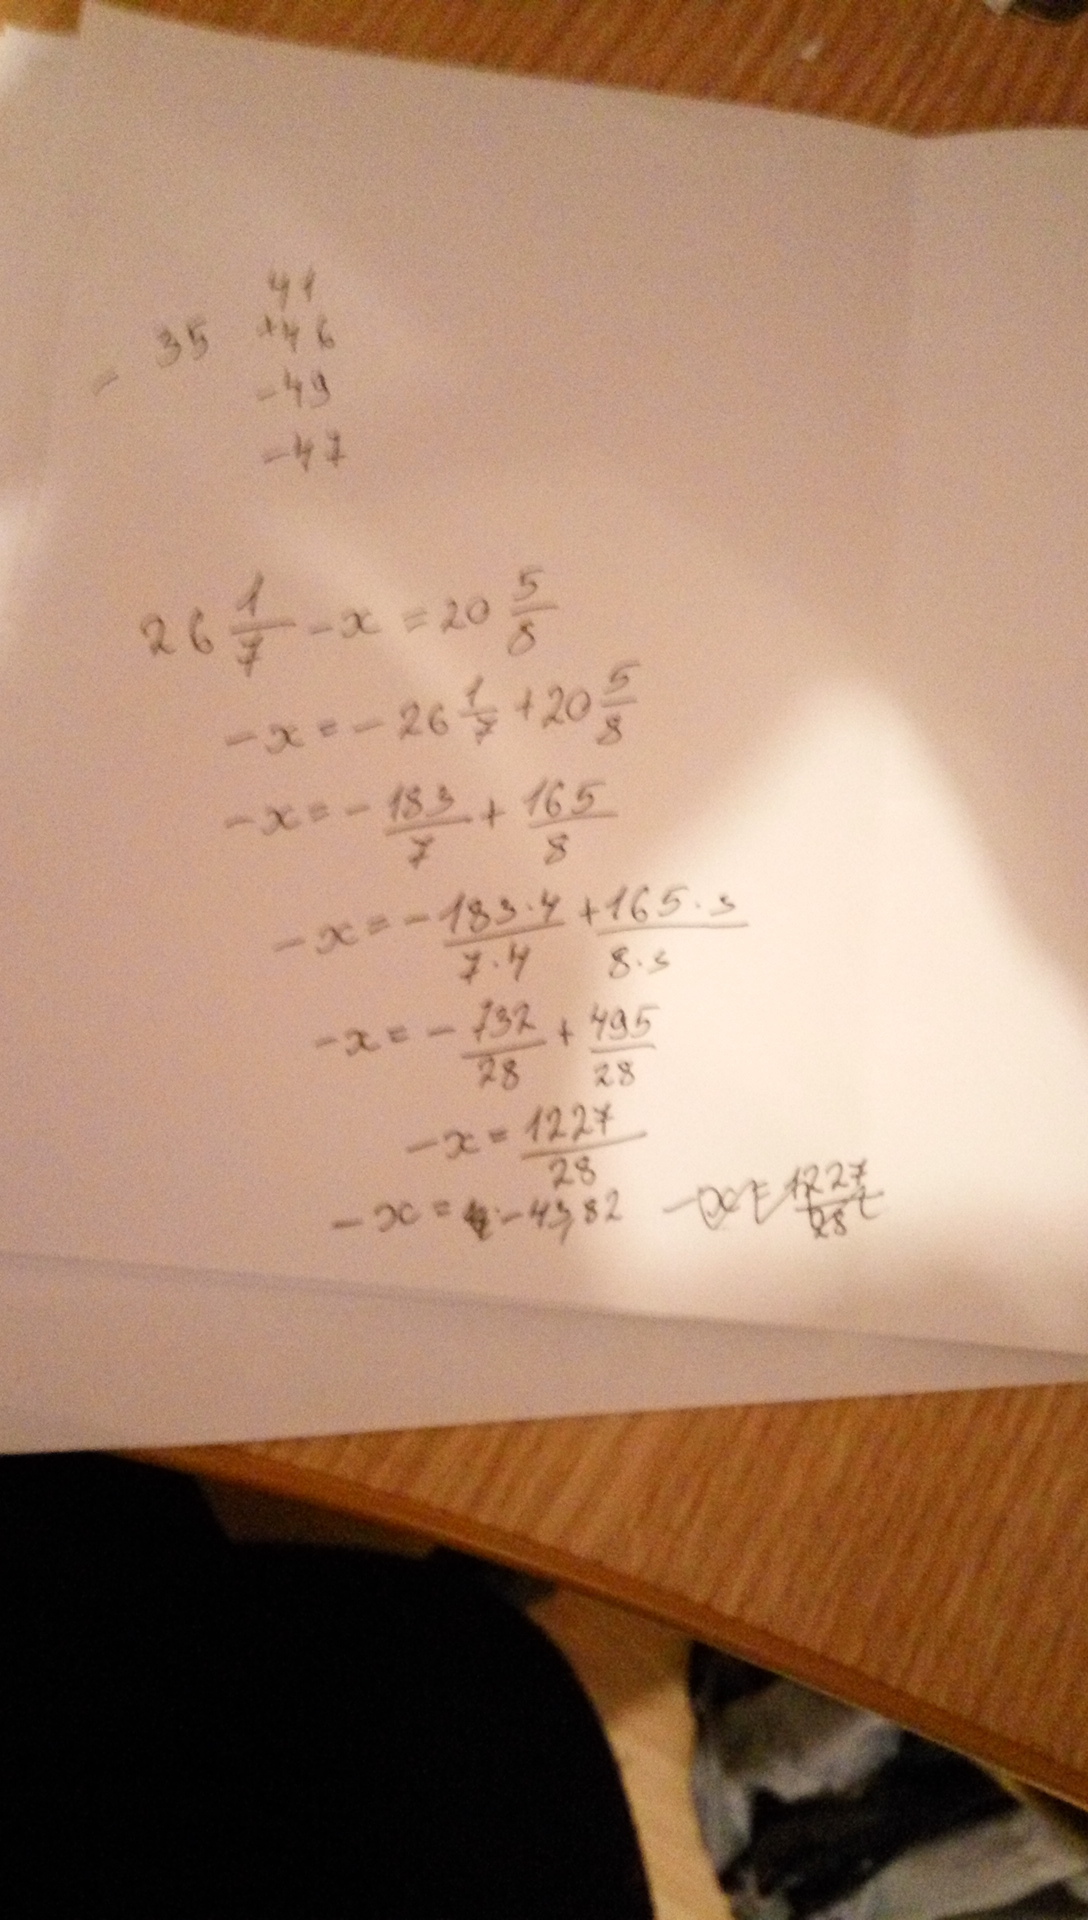 41
- 35 +46
-49
-47
26 1/7 - x = 20 5/8
-x = - 26 1/7 + 20 5/8
-x = - 183/7 + 165/8
-x = - 183·4/7·4 + 165·3/8·3
-x = - 732/28 + 495/28
-x = 1227/28
-x = -43,82 -x = 1227/28